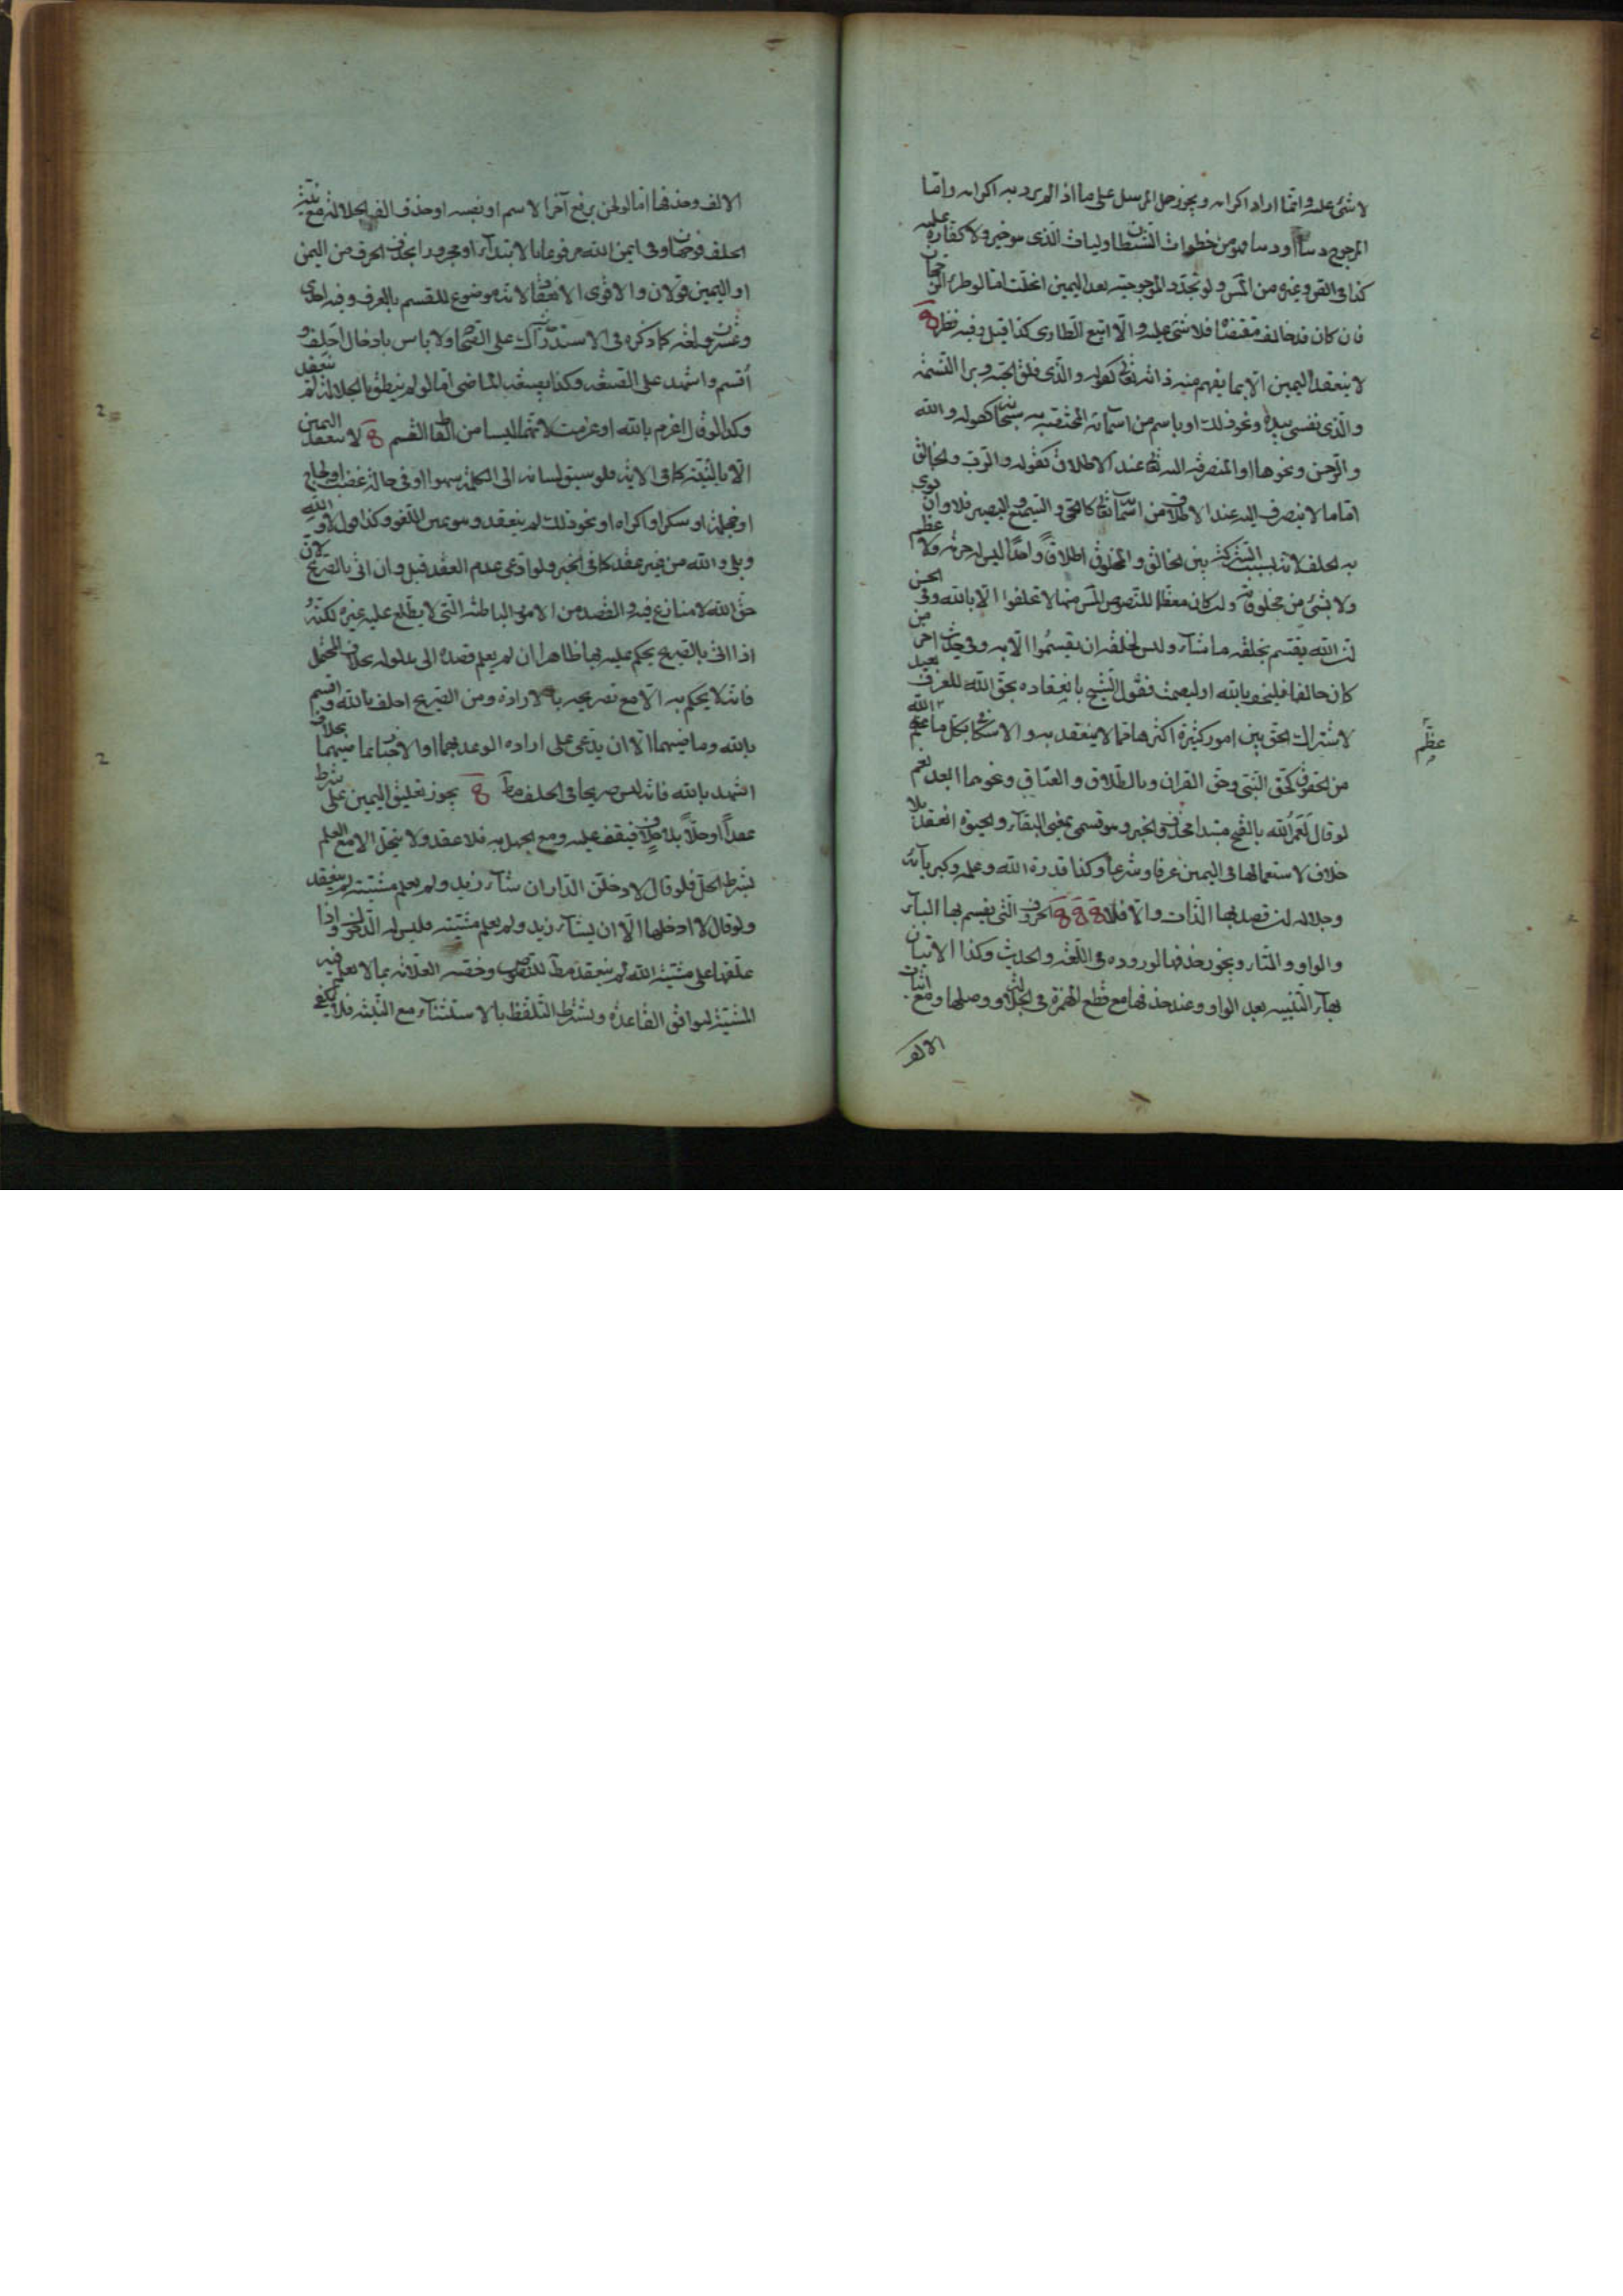 لا شئ عليه وانما اراد اكرامه ويجوز حمل المرسل على ما اذا لم يرد به اكرامه واما
المرجوح دينا او دنيا فهو من خطوات الشيطان وليات الذى هو خير ولا كفارة عليه
كذا فى القروغيره من المس ولو تجدد المرجوحية بعد اليمين انحلت اما لو طرء الرجحان
فان كان قد خالف مقتضاها فلا شئ عليه والا اتبع الطارى كذا قيل وفيه نظر
لا ينعقد اليمين الا بما يفهم منه ذاته تعالى كقوله والذى فلق الحبة وبرا النسمة
والذى نفسى بيده ونحو ذلك او باسم من اسمائه المختصة به سبحانه كقوله والله
والرحمن ونحوها او المنصرفة اليه تعالى عند الاطلاق كقوله والرب والخالق
اما ما لا ينصرف اليه عند الاطلاق من اسمائه تعالى كالحى والسميع والبصير فلا وان نوى
به الحلف لانه بسبب الشركة بين الخالق والمخلوق اطلاقا واحدا ليس له حرمة ولا عظم
ولا بشئ من مخلوقاته ولو كان معظما للنصوص المس منها لا تحلفوا الا بالله وفى الحسن
ان الله يقسم بخلقه ما شاء وليس لخلقه ان يقسموا الا به وفى حديث اخر من
كان حالفا فليحلف بالله او ليصمت فقول الشيخ بانعقاده بحق الله للعرف بعيد
لاشتراك الحق بين امور كثيرة اكثرها مما لا ينعقد به والاسكافى بكل ما عظم الله
عظم
من الحقوق كحق النبى وحق القران وبالطلاق والعتاق ونحوهما ابعد نعم
لو قال لَعَمْرُ الله بالفتح مبتدا محذوف الخبر وهو قسمى بمعنى البقاء والحيوة انعقد بلا
خلاف لاستعمالها فى اليمين عرفا وشرعا وكذا قدرة الله وعلمه وكبريائه
وجلاله ان قصد بها الذات والا فلا الحروف التى يقسم بها الباء
والواو والتاء ويجوز حذفها لوروده فى اللغة والحديث وكذا الاتيان
بهاء التنبيه بعد الواو وعند حذفها مع قطع الهمزة فى الجلالة ووصلها ومع اثبات
الالف
الالف وحذفها اما لو لحن برفع آخر الاسم او نصبه او حذف الف الجلالة مع نية
الحلف فوجهان وفى ايمن الله مرفوعا بالابتداء او مجرورا بحذف الحرف من اليمن
او اليمين قولان والاقوى الانعقاد لانه موضوع للقسم بالعرف وفيه احدى
وعشرون لغة كما ذكره فى الاستدراك على الصحاح ولا باس بادخال احلف و
اقسم واشهد على الصيغة وكذا بصيغة الماضى اما لو لم ينطق بالجلالة لم تنعقد
وكذا لو قال اعزم بالله او عزمت لانهما ليسا من الفاظ القسم لا تنعقد اليمين
الا بالنية كما فى الاية فلو سبق لسانه الى الكلمة سهوا او فى حالة غضب او لجاج
او عجلة او سكر او اكراه او نحو ذلك لم ينعقد وهو يمين اللغو وكذا قول لا والله
وبلى والله من غير عقد كما فى الخبر ولو ادعى عدم العقد قبل وان اتى بالصريح لان
حق الله لا منازع فيه والقصد من الامور الباطنة التى لا يطلع عليه غيره لكنه
اذا اتى بالصريح يحكم عليه بها ظاهرا ان لم يعلم قصده الى مدلوله بخلاف المحتمل
فانه لا يحكم به الا مع تصريحه بالارادة ومن الصريح احلف بالله واقسم
بالله وماضيهما الا ان يدعى على ارادة الوعد بهما او الاخبار بماضيهما بخلاف
اشهد بالله فانه ليس صريحا فى الحلف مط يجوز تعليق اليمين على شرط
عقدا او حلا بلا خلاف فيقف عليه ومع الجهل به فلا عقد ولا ينحل الا مع العلم
بشرط الحل فلو قال لادخلن الدار ان شاء زيد ولم يعلم مشيته لم ينعقد
ولو قال لا ادخلها الا ان يشاء زيد ولم يعلم مشيته فليس له الدخول واذا
علقها على مشية الله لم ينعقد مط للنصوص وخصه العلامة بما لا يعلم فيه
المشية ليوافق القاعدة ويشترط التلفظ بالاستثناء مع النية فلا يكفى